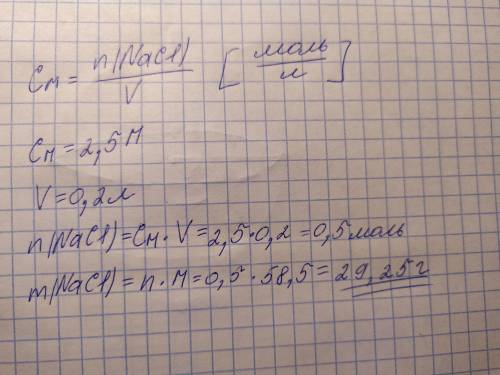 Cм = n(NaCl)/V [моль/л]
Cм = 2,5 М
V = 0,2 л
n(NaCl) = Cм · V = 2,5 · 0,2 = 0,5 моль
m(NaCl) = n · M = 0,5 · 58,5 = 29,25 г